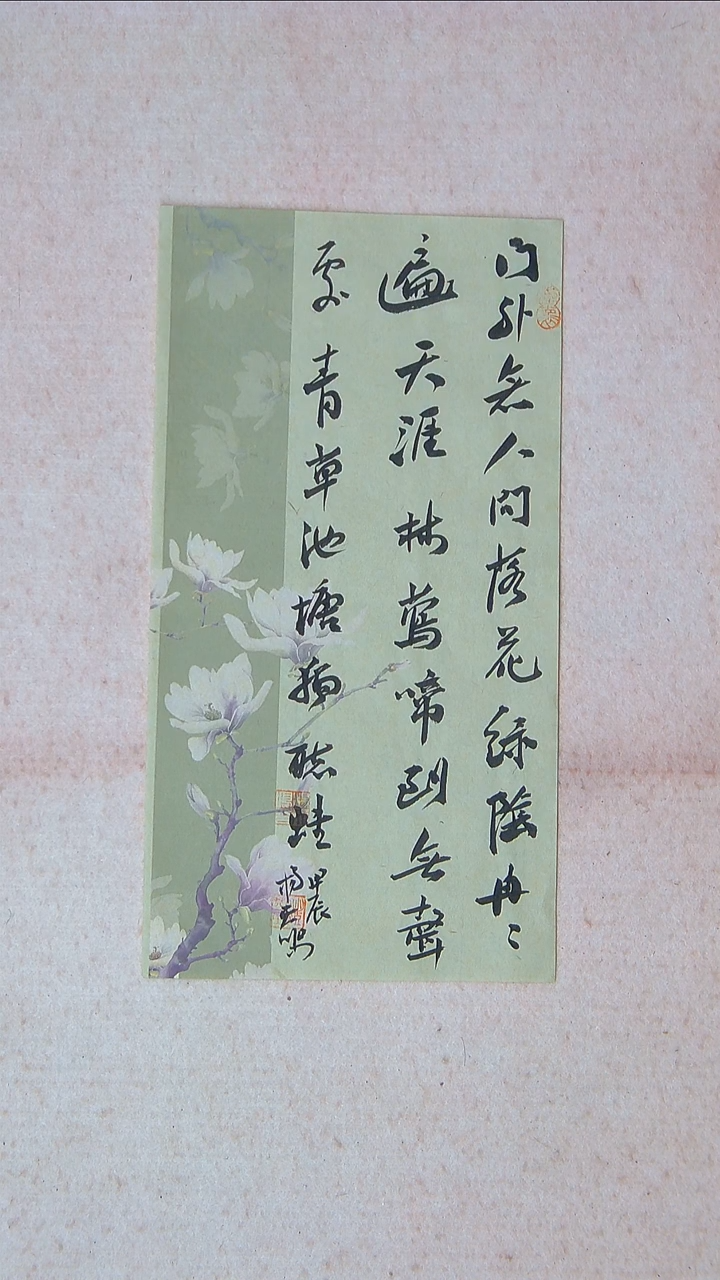 门外無人問落花绿陰冉〻
遍天涯林莺啼到無聲
處青草池塘獨聴蛙
甲辰
杨